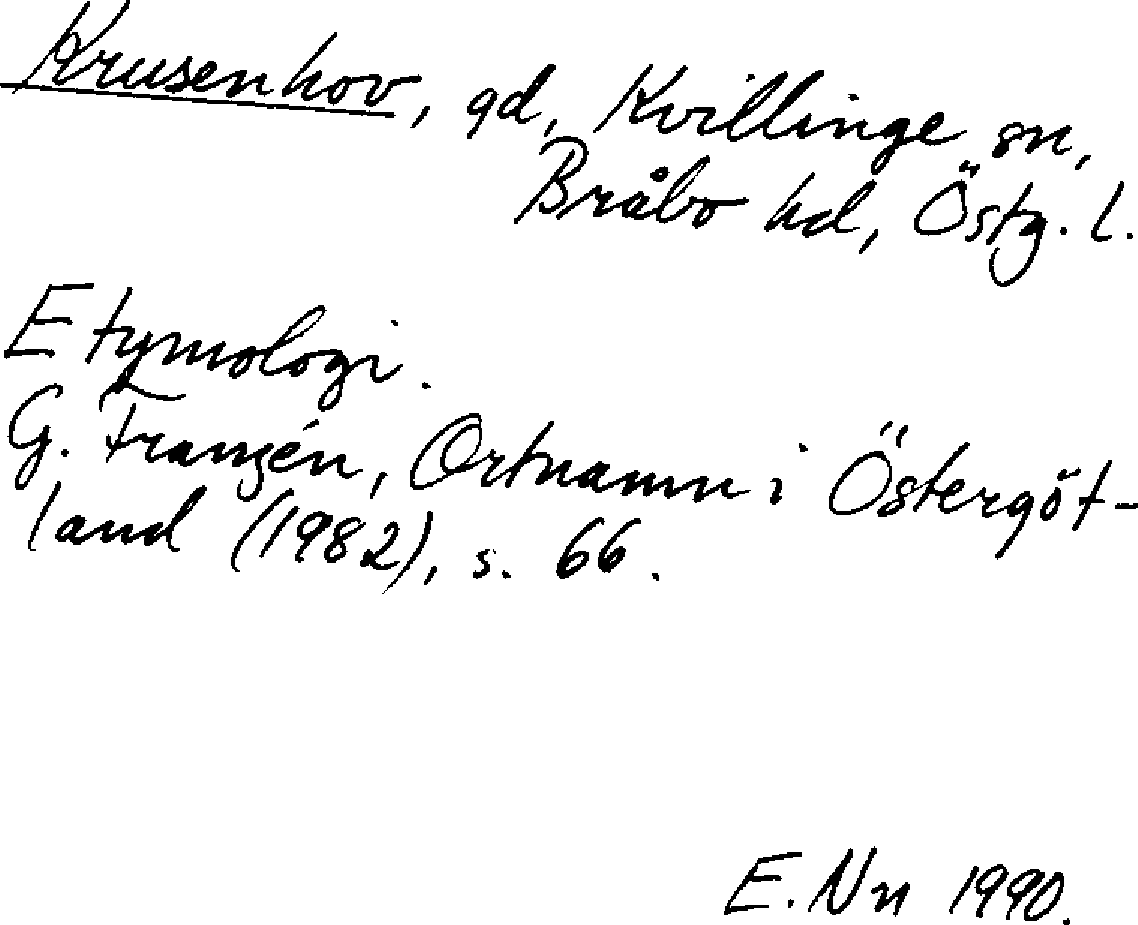 Krusenhov, gd, Kvillinge sn,
Bråbo hd, Östg. l.
Etymologi.
G. Franzén, Ortnamn i Östergöt-
land (1982), s. 66.
E. Nn 1990.